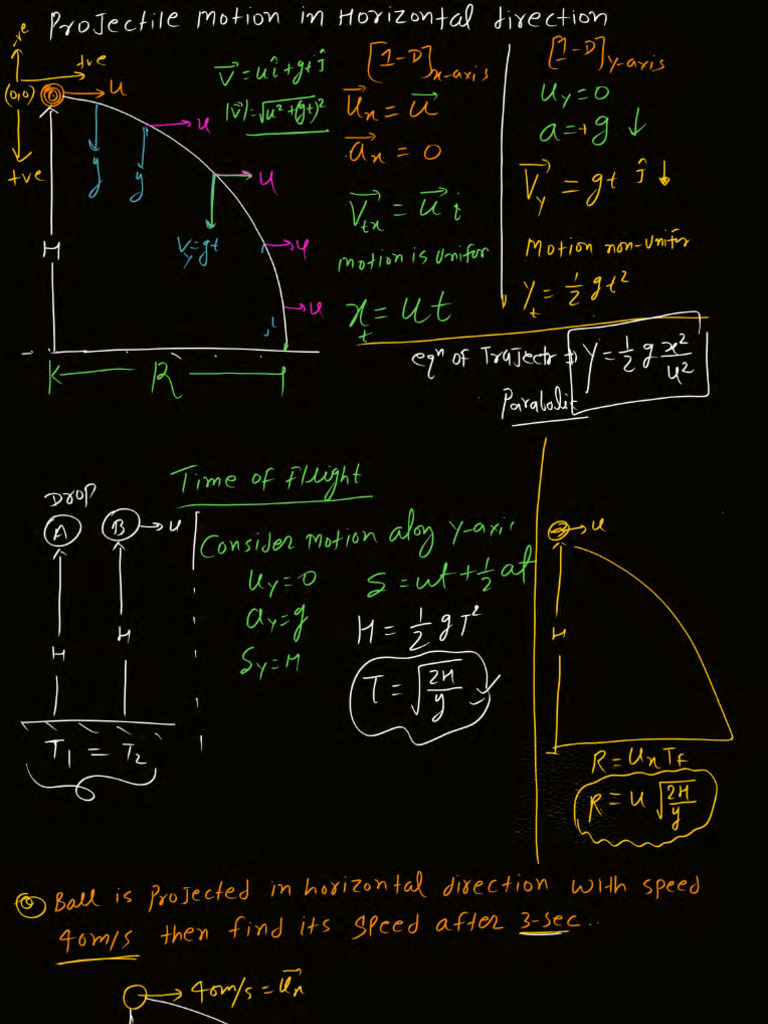 Projectile motion in Horizontal direction
+ve
+ve
(0,0)
u
+ve
H
g
g
u
u
V_y=gt
u
u
R
V⃗ = uî+gt ĵ
|V⃗|=√u²+(gt)²
[1-D]x-axis
u⃗x = u⃗
a⃗x = 0
V⃗tx = u⃗ i
motion is unifor
xt = ut
[1-D]y-axis
uy=0
a=+g ↓
V⃗y = gt ĵ ↓
Motion non-unifor
yt = 1/2 gt²
eqⁿ of Trajectr ⇒ Y = 1/2 g x²/u²
Parabolic
Time of Flight
DROP
A
B → u
H
H
T1 = T2
Consider motion along y-axis
uy=0
ay=g
Sy=H
S = ut + 1/2 at
H = 1/2 gT²
T = √2H/g
u
H
R = ux Tf
R = u √2H/g
Ball is projected in horizontal direction with speed
40m/s then find its speed after 3-sec..
→ 40m/s = u⃗x